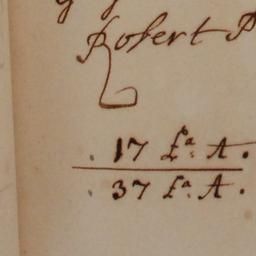 Robert P
17 £a: A.
37 £a: A.